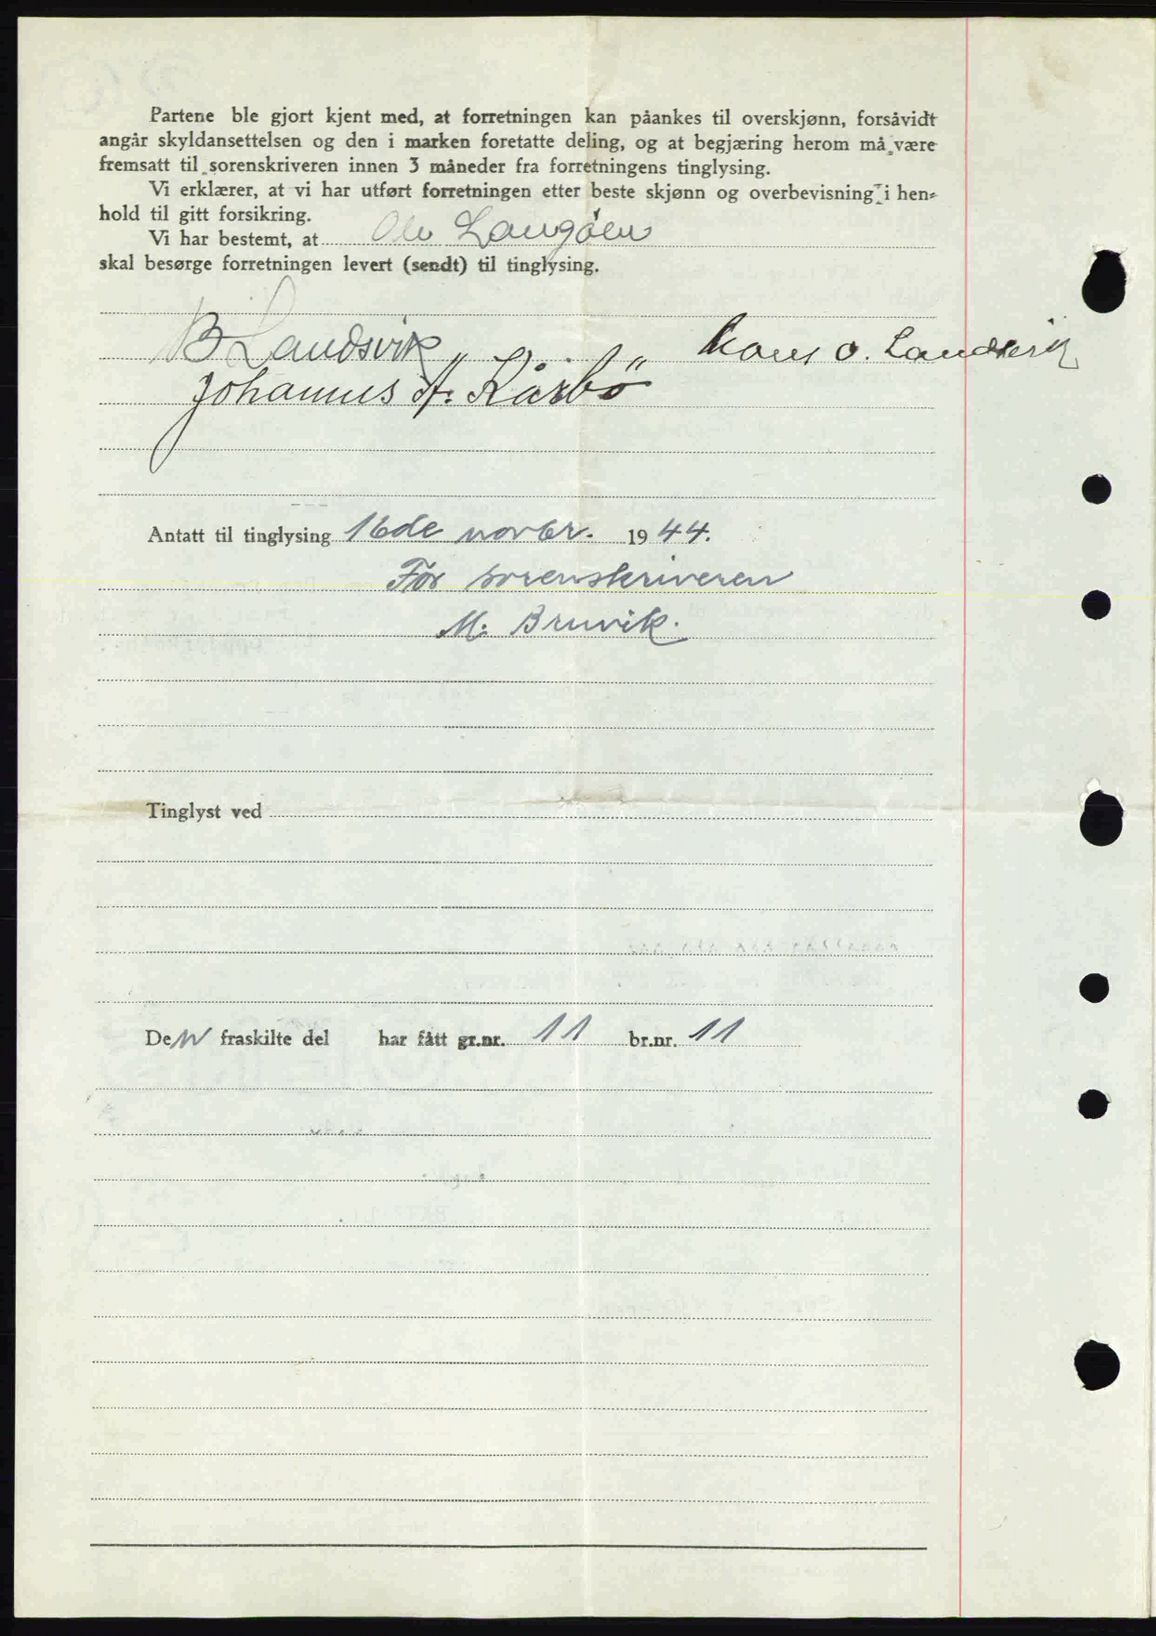 Partene ble gjort kjent med, at forretningen kan påankes til overskjønn, forsåvidt
angår skyldansettelsen og den i marken foretatte deling, og at begjæring herom må være
fremsatt til sorenskriveren innen 3 måneder fra forretningens tinglysing.
Vi erklærer, at vi har utført forretningen etter beste skjønn og overbevisning i hen-
hold til gitt forsikring.
Vi har bestemt, at Ole Langøen
skal besørge forretningen levert (sendt) til tinglysing.
B Landsvik Hans O. Landsvik
Johannes A. Kårbö
Antatt til tinglysing 16de novbr. 1944.
For sorenskriveren
M. Bruvik.
Tinglyst ved
Den fraskilte del har fått gr.nr. 11 br.nr. 11